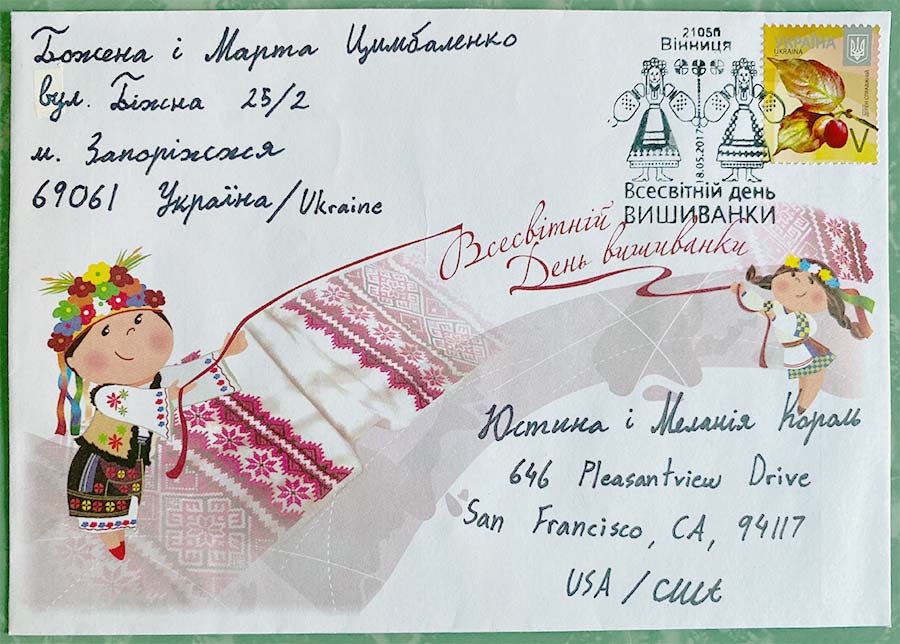 Божена і Марта Цимбаленко
вул. Біжна 25/2
м. Запоріжжя
69061 Україна/Ukraine
21050
Вінниця
18.05.2017
Всесвітній день
ВИШИВАНКИ
УКРАЇНА
UKRAINA
V
Всесвітній
День вишиванки
Юстина і Меланія Король
646 Pleasantview Drive
San Francisco, CA, 94117
USA / США